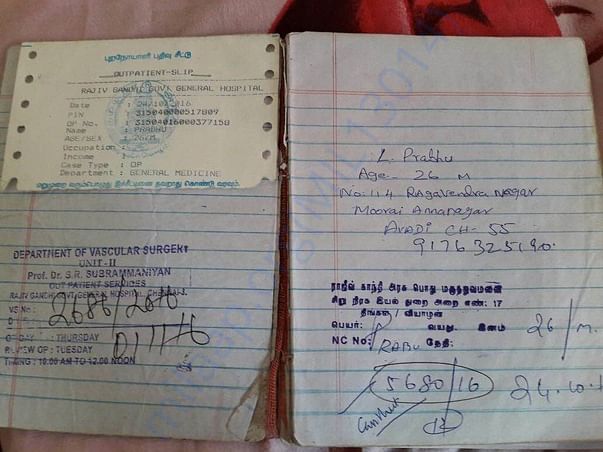 புறநோயாளி பதிவு சீட்டு
OUTPATIENT-SLIP
RAJIV GANDHI GOVT GENERAL HOSPITAL
Date : 24/10/2016
PIN : 315040000517809
OP No. : 31504016000377158
Name : PRABHU
AGE/SEX : 26/M
Occupation :
Income :
Case Type : OP
Department : GENERAL MEDICINE
மறுமுறை வரும்பொழுது இச்சீட்டினை தவறாது கொண்டு வரவும்.
DEPARTMENT OF VASCULAR SURGERY
UNIT-II
Prof. Dr. S.R. SUBRAMMANIYAN
OUT PATIENT SERVICES
RAJIV GANDHI GOVT. GENERAL HOSPITAL, CHENNAI.
VS No : 2686/2016
OP DAY : THURSDAY
REVIEW OP : TUESDAY
TIMING : 10.00 AM TO 12.00 NOON
L. Prabhu
Age - 26 M
No: 114 Ragavendra Nagar
Moorai Annanagar
AVADI CH-55
9176325190.
ராஜீவ் காந்தி அரசு பொது மருத்துவமனை
சிறு நீரக இயல் துறை அறை எண்: 17
திங்கள் / வியாழன்
பெயர்: வயது: இனம் 26/M.
NC No: PRABU தேதி:
5680/16 24.10.1